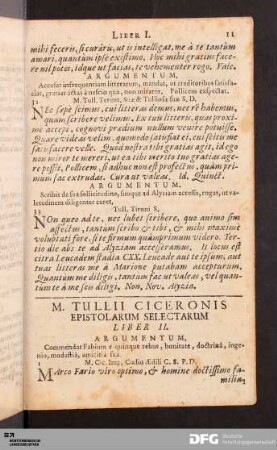 LIBER I. 11
mihi feceris, si curâris, ut is intelligat, me à te tantùm
amari, quantùm ipse existimo. Hoc mihi gratius face-
re nil potes, idque ut facias, te vehementer rogo. Vale.
ARGUMENTUM.
Accusat infrequentiam litterarum, mandat, ut creditoribus satisfa-
ciat, gratias actas à nescio quo, non miratur. Pollicem exspectat.
M. Tull. Terent. suæ & Tulliolæ suæ S. D.
NEc sæpè scimus, cui literas demus, nec rē habemus,
quam scribere velimus. Ex tuis litteris, quas proxi-
mè accepi, cognovi prædium nullum venire potuisse.
Quare videas velim, quomodo satisfiat ei, cui scitis me
satisfacere velle. Quòd nostra tibi gratias agit, id ego
non miror te mereri, ut ea tibi meritò tuo gratias age-
re possit. Pollicem, si adhuc non est profectus, quàm pri-
mùm fac extrudas. Cura ut valeas. Id. Quinct.
ARGUMENTUM.
Scribit de sua sollicitudine, simque ad Alyziam accessu, rogat, ut va-
letudinem diligenter curet.
Tull. Tironi S.
NOn queo ad te, nec lubet scribere, quo animo sim
affectus, tantùm scribo & tibi, & mihi maximæ
voluptati fore, si te firmum quàm primùm videro. Ter-
tio die abs te ad Alyziam accesseramus. Is locus est
citra Leucadem stadia CXX. Leucade aut te ipsum, aut
tuas literas me à Marione putabam accepturum.
Quantùm me diligis, tantùm fac ut valeas, vel quan-
tùm te à me scis diligi. Non. Nov. Alyzia.
M. TULLII CICERONIS
EPISTOLARUM SELECTARUM
LIBER II.
ARGUMENTUM.
Commendat Fabium è quinque rebus, bonitate, doctrinâ, inge-
nio, modestiâ, amicitiâ sua
M. Cic. Imp. Cælio Ædili C. S. P. D.
MArco Fabio viro optimo, & homine doctissimo fa-
milia-
DFG Deutsche
Forschungsgemeinschaft